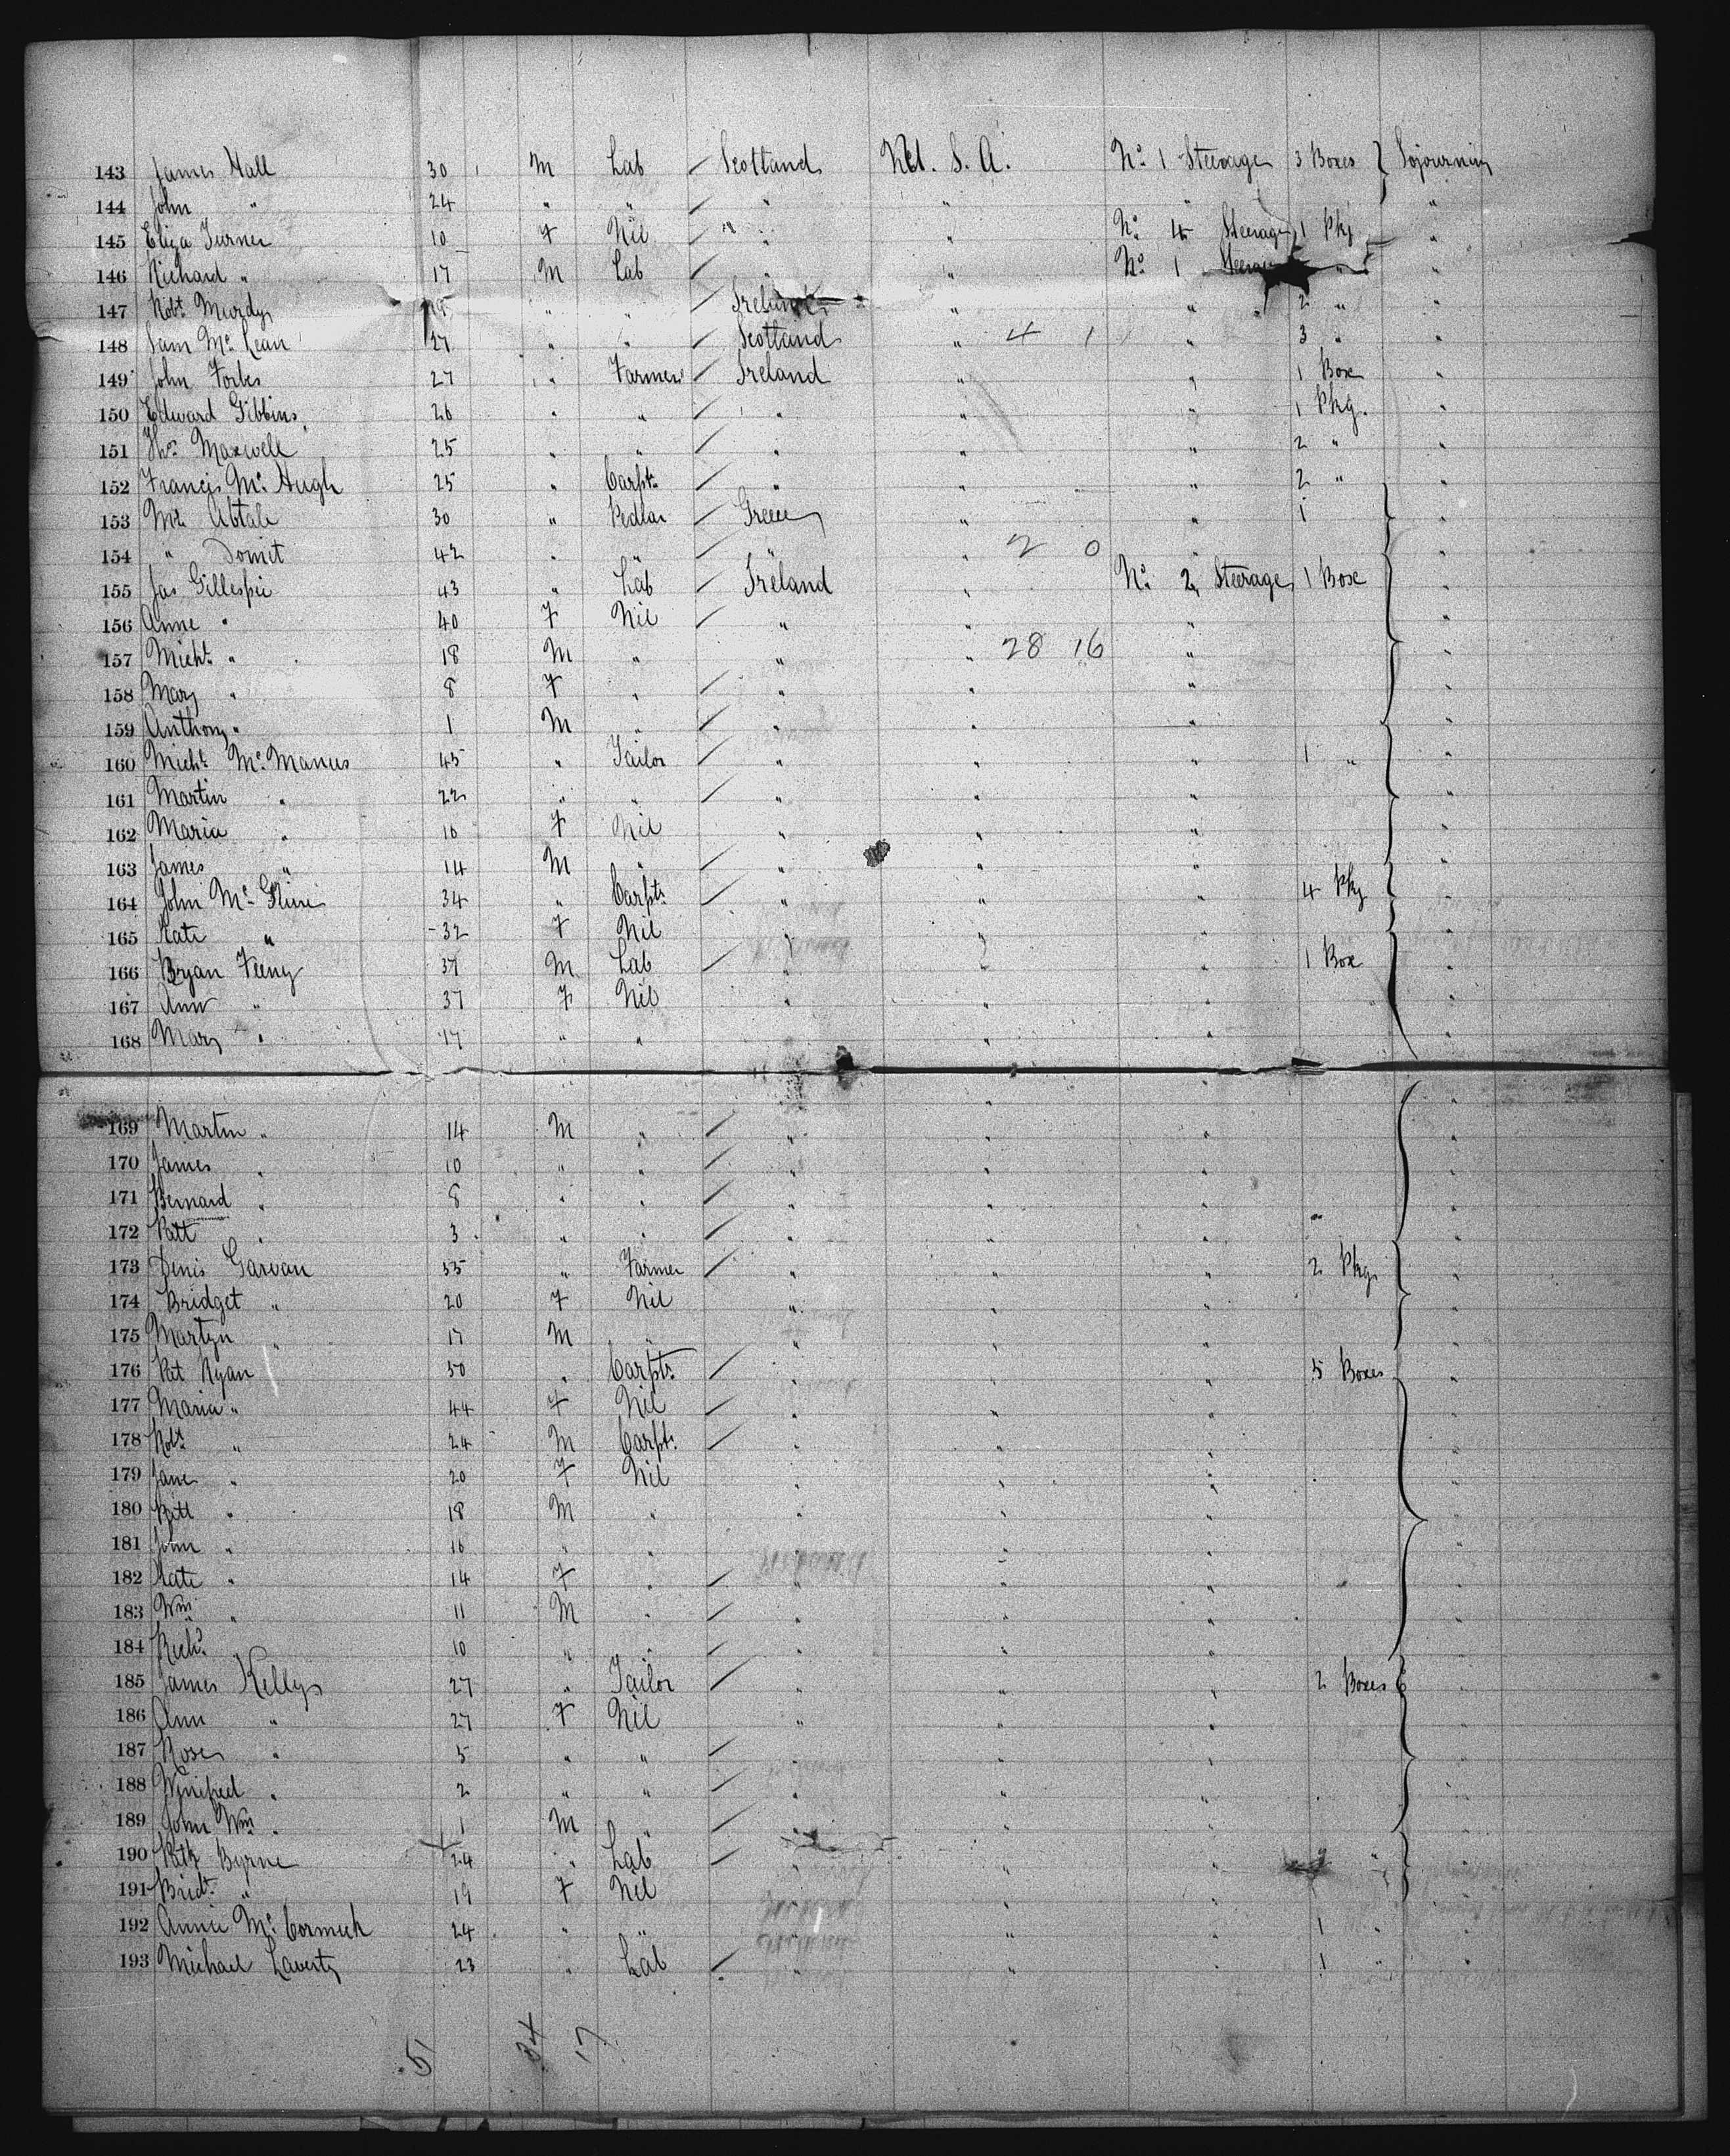 143 James Hall 30 M Lab Scotland U.S.A. No 1 Steerage 3 Boxes Sojourning
144 John " 24 " " " " " "
145 Eliza Turner 10 F Nil " " No 4 Steerage 1 Pkg "
146 Richard " 17 M Lab " " No 1 Steerage " "
147 Robt Murdy " " Ireland " " 2 " "
148 Sam Mc Lean 27 " " Scotland " 4 1 " 3 " "
149 John Forbes 27 " Farmer Ireland " " 1 Box "
150 Edward Gibbins 26 " " " " " 1 Pkg. "
151 Thos Maxwell 25 " " " " " 2 " "
152 Francis Mc Hugh 25 " Carptr " " " 2 " "
153 Abtale 30 " Pedlar Greece " " 1 "
154 " Domit 42 " " " " 2 0 " "
155 Jas Gillespie 43 " Lab Ireland " No 2 Steerage 1 Box "
156 Anne " 40 F Nil " " " "
157 Michl " 18 M " " " 28 16 " "
158 Mary " 8 F " " " " "
159 Anthony " 1 M " " " " "
160 Michl Mc Manus 45 " Tailor " " " 1 " "
161 Martin " 22 " " " " " "
162 Maria " 16 F Nil " " " "
163 James " 14 M " " " " "
164 John Mc 34 " Carptr " " " 4 Pkg "
165 Kate " 32 F Nil " " " "
166 Bryan Feeny 37 M Lab " " " 1 Box "
167 Ann " 37 F Nil " " " "
168 Mary " 17 " " " " "
169 Martin " 14 M " " " " "
170 James " 10 " " " " " "
171 Bernard " 8 " " " " " "
172 Patt " 3 " " " " " "
173 Denis Garvan 55 " Farmer " " " 2 Pkgs "
174 Bridget " 20 F Nil " " " "
175 Martyn " 17 M " " " " "
176 Pat Ryan 50 " Carptr " " " 5 Boxes "
177 Maria " 44 F Nil " " " "
178 Robt " 24 M Carptr " " " "
179 Jane " 20 F Nil " " " "
180 Bill " 18 M " " " " "
181 John " 16 " " " " " "
182 Kate " 14 F " " " " "
183 Wm " 11 M " " " " "
184 Richd " 10 " " " " " "
185 James Kelly 27 " Tailor " " " 2 Boxes "
186 Ann " 27 F Nil " " " "
187 Rose " 5 " " " " " "
188 Winifred " 2 " " " " " "
189 John Wm " 1 M " " " " "
190 Patk Byrne 24 " Lab " " " " "
191 Bridt " 19 F Nil " " " "
192 Annie Mc Cormick 24 " " " " " 1 " "
193 Michael Laverty 23 " Lab " " " 1 " "
51 34 17